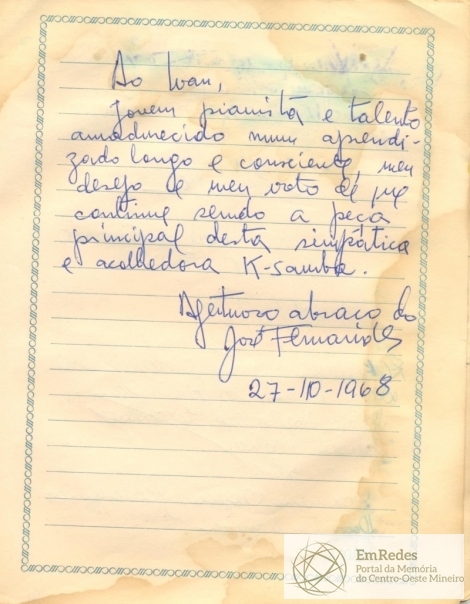 Ao Ivan,
Jovem pianista e talento
amadurecido num aprendi-
zado longo e consciente, meu
desejo e meu voto é que
continue sendo a peça
principal desta simpática
e acolhedora K-samba.
Afetuoso abraço do
José Fernandes
27-10-1968
EmRedes
Portal da Memória
do Centro-Oeste Mineiro